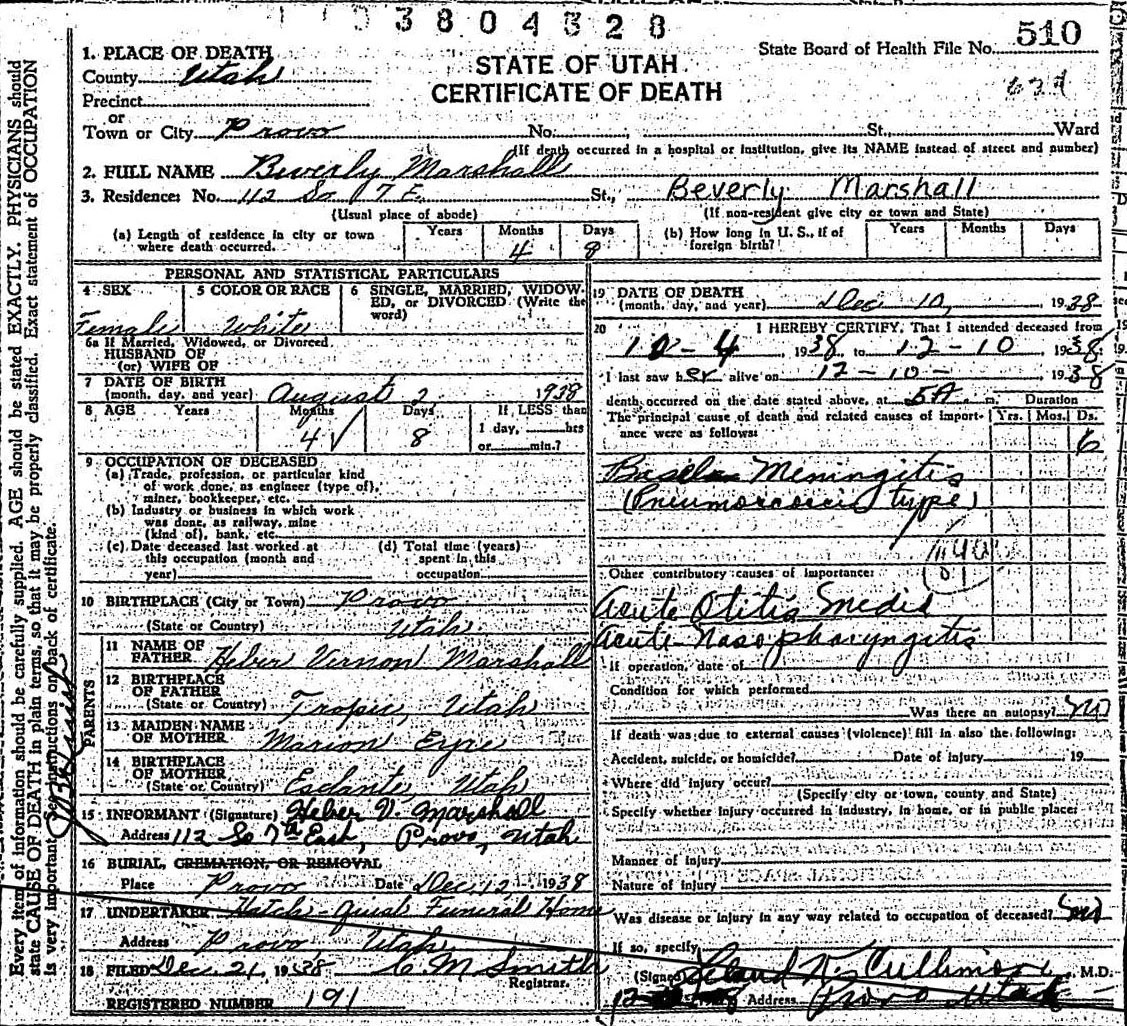 3804328
510
State Board of Health File No.
STATE OF UTAH
CERTIFICATE OF DEATH
1. PLACE OF DEATH
County Utah
Precinct
or
Town or City Provo No. St., Ward
(If death occurred in a hospital or institution, give its NAME instead of street and number)
2. FULL NAME Beverly Marshall
3. Residence: No. 112 So 7 E. St., Beverly Marshall
(Usual place of abode) (If non-resident give city or town and State)
(a) Length of residence in city or town where death occurred. Years Months 4 Days 8
(b) How long in U. S., if of foreign birth? Years Months Days
PERSONAL AND STATISTICAL PARTICULARS
4 SEX Female
5 COLOR OR RACE White
6 SINGLE, MARRIED, WIDOWED, or DIVORCED (Write the word)
6a If Married, Widowed, or Divorced
HUSBAND OF
(or) WIFE OF
7 DATE OF BIRTH
(month, day, and year) August 2 1938
8 AGE Years Months 4 Days 8 If LESS than 1 day, hrs or min.?
9 OCCUPATION OF DECEASED
(a) Trade, profession, or particular kind
of work done, as engineer (type of),
miner, bookkeeper, etc.
(b) Industry or business in which work
was done, as railway, mine
(kind of), bank, etc.
(c) Date deceased last worked at this occupation (month and year)
(d) Total time (years) spent in this occupation
10 BIRTHPLACE (City or Town) Provo
(State or Country) Utah
PARENTS
11 NAME OF FATHER Heber Vernon Marshall
12 BIRTHPLACE OF FATHER
(State or Country) Tropic, Utah
13 MAIDEN NAME OF MOTHER Marion Eyre
14 BIRTHPLACE OF MOTHER
(State or Country) Esclante, Utah
15 INFORMANT (Signature) Heber V. Marshall
Address 112 So 7th East, Provo, Utah
16 BURIAL, CREMATION, OR REMOVAL
Place Provo Date Dec 12 1938
17 UNDERTAKER Funeral Home
Address Provo Utah
18 FILED Dec 21, 1938 C M Smith
Registrar.
REGISTERED NUMBER 191
19 DATE OF DEATH
(month, day, and year) Dec 10, 1938
20 I HEREBY CERTIFY, That I attended deceased from
10-4, 1938, to 12-10 1938
I last saw her alive on 12-10- 1938
death occurred on the date stated above, at 5A. m. Duration
The principal cause of death and related causes of importance were as follows: Yrs. Mos. Ds.
6
Meningitis
type)
Other contributory causes of importance:
Acute Otitis Media
Acute Nasopharyngitis
If operation, date of
Condition for which performed
Was there an autopsy? No
If death was due to external causes (violence) fill in also the following:
Accident, suicide, or homicide? Date of injury 19
Where did injury occur?
(Specify city or town, county and State)
Specify whether injury occurred in industry, in home, or in public place:
Manner of injury
Nature of injury
Was disease or injury in any way related to occupation of deceased? No
If so, specify
(Signed) M.D.
Address Provo Utah
Every item of information should be carefully supplied. AGE should be stated EXACTLY. PHYSICIANS should
state CAUSE OF DEATH in plain terms, so that it may be properly classified. Exact statement of OCCUPATION
is very important. See instructions on back of certificate.